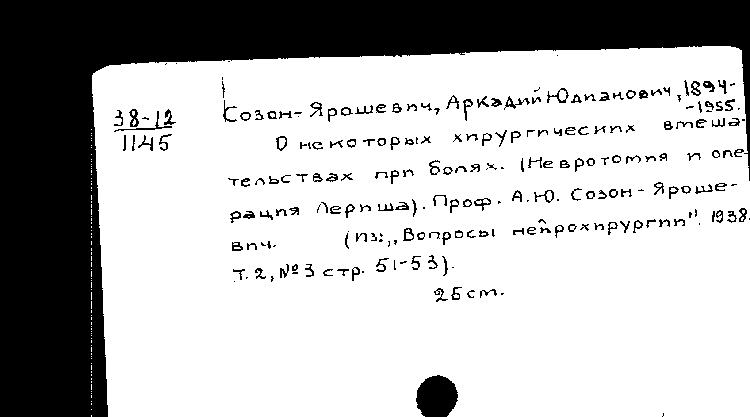 38-12
1145
Созон-Ярошевич, Аркадий Юлианович, 1894-
-1955.
О некоторых хирургических вмеша-
тельствах при болях. (Невротомия и опе-
рация Лериша). Проф. А.Ю. Созон-Яроше-
вич. (Из: „Вопросы нейрохирургии". 1938.
Т. 2, № 3 стр. 51-53).
25 cm.